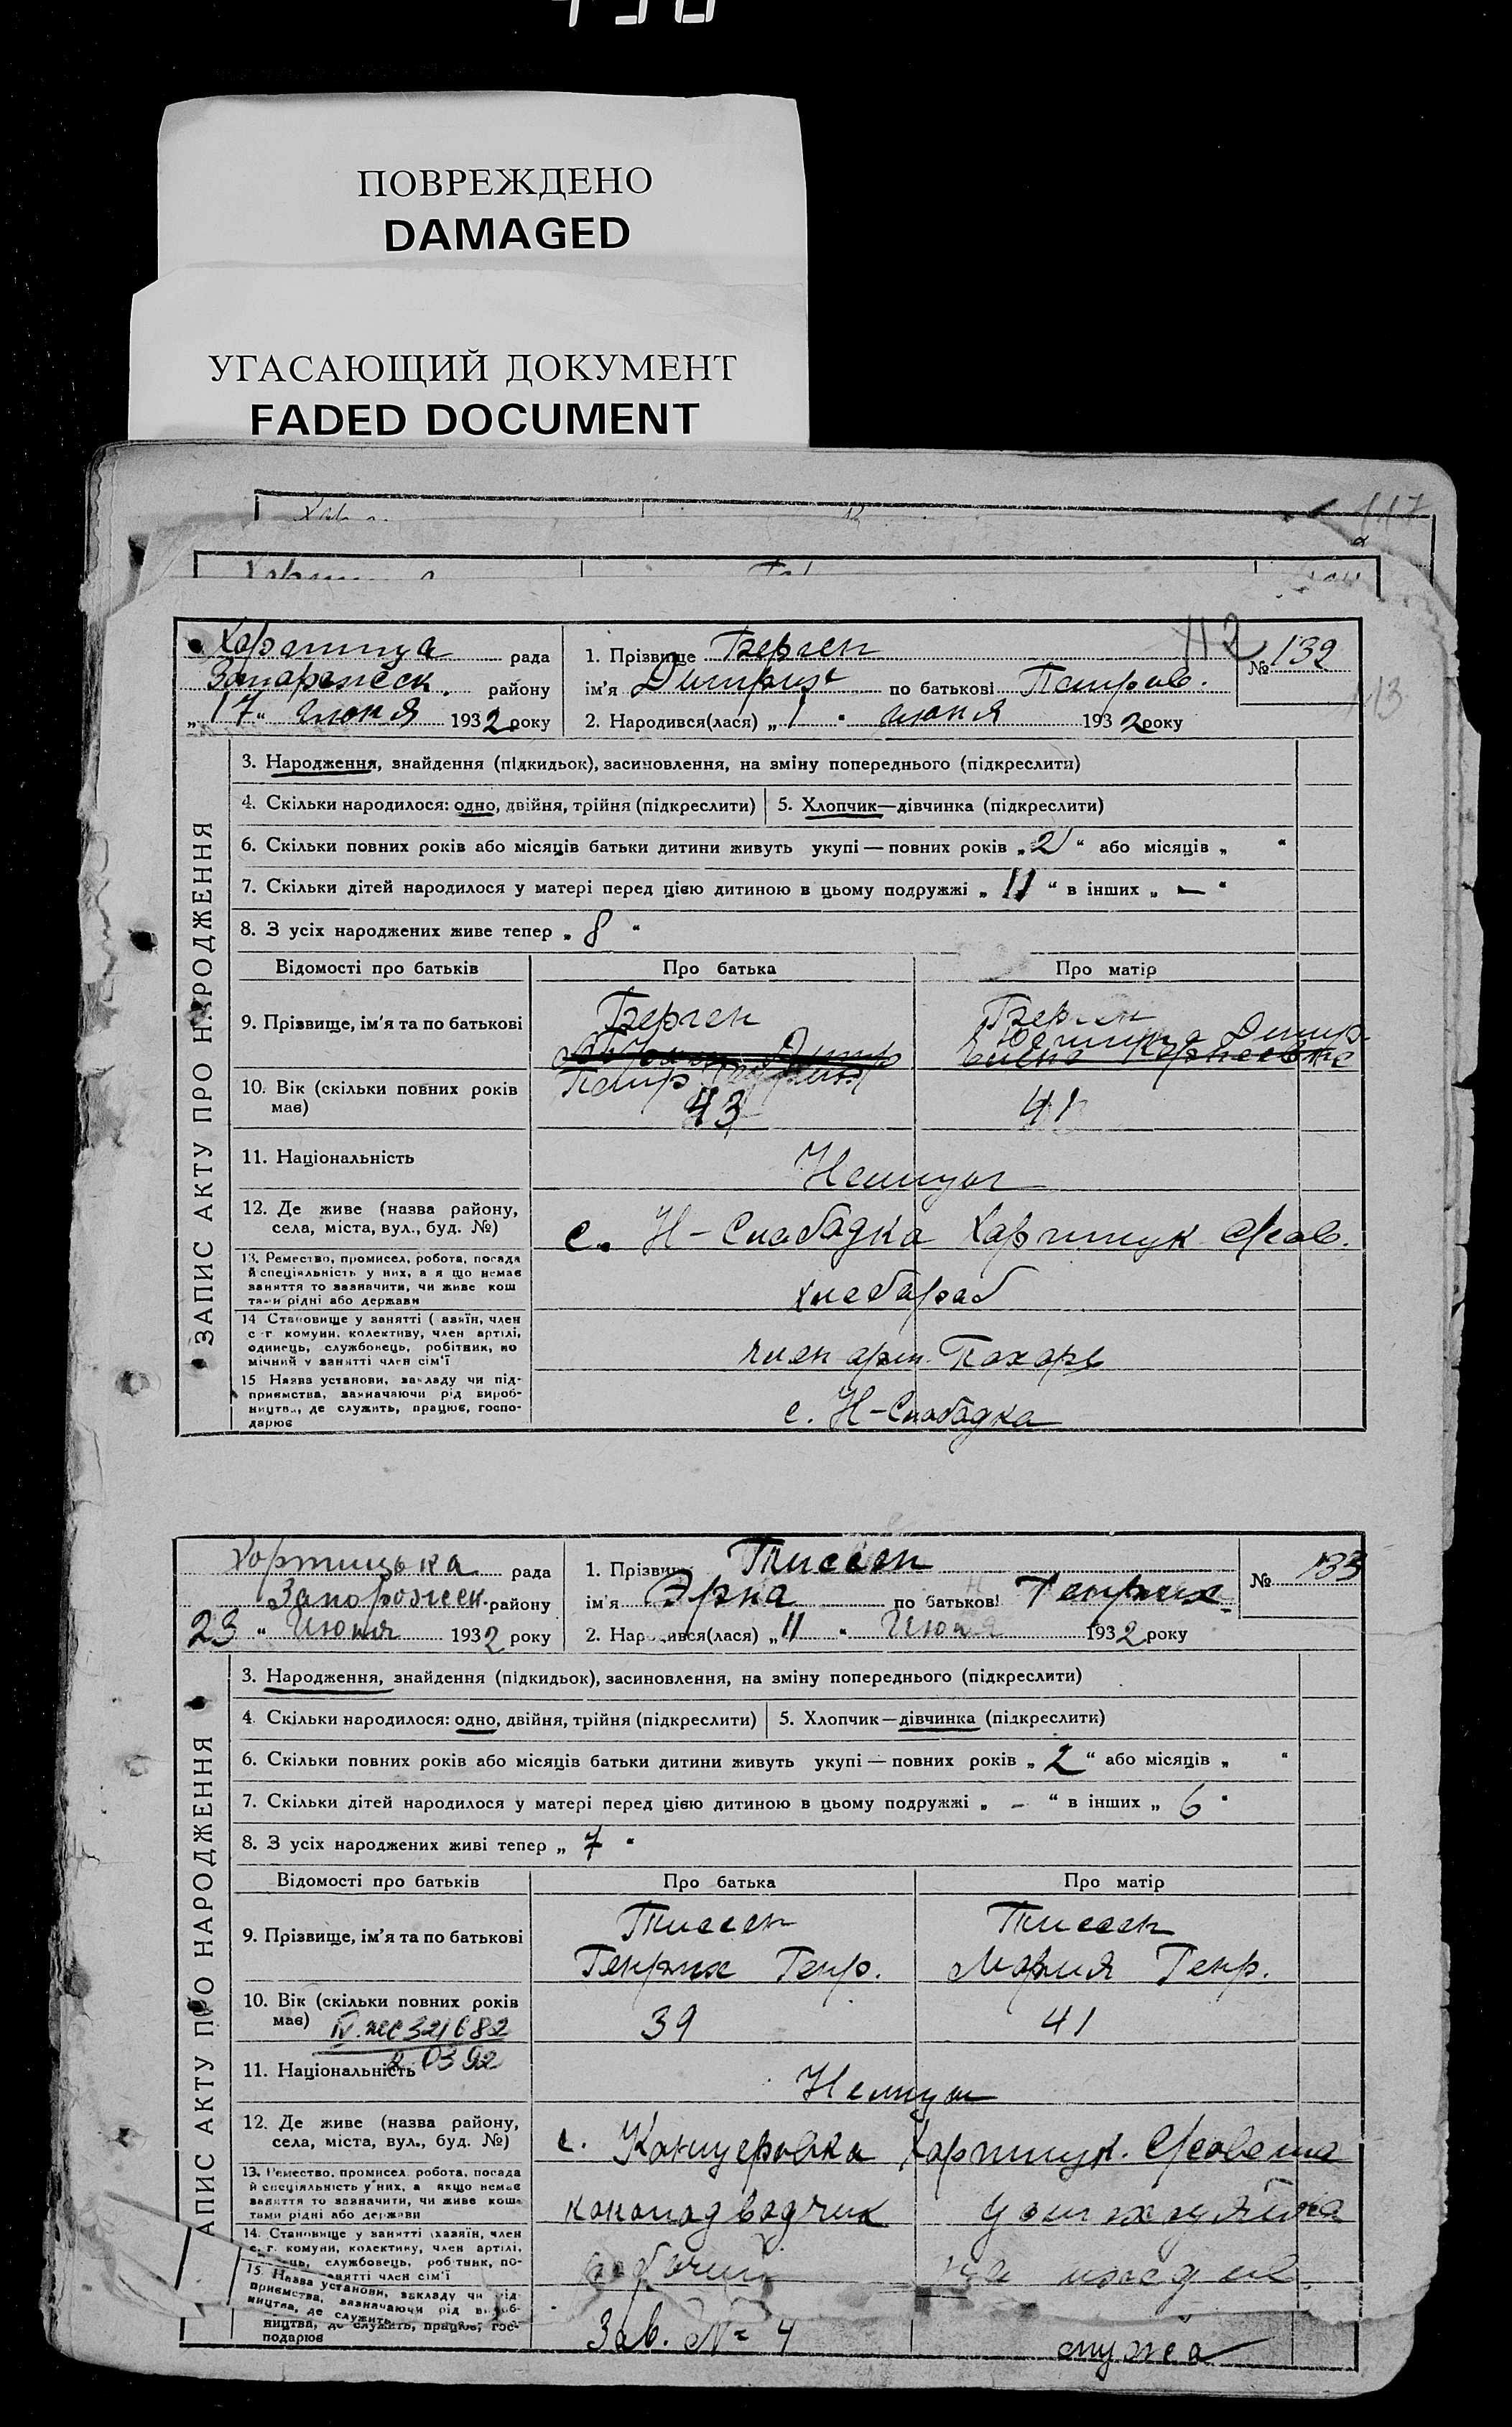 ПОВРЕЖДЕНО
DAMAGED
УГАСАЮЩИЙ ДОКУМЕНТ
FADED DOCUMENT
117
112
113
Хортица рада
Запорожск. району
„17“ июня 1932 року
1. Прізвище Берген
ім'я Дитрих по батькові Петров.
№ 132
2. Народився(лася) „1“ июня 1932 року
ЗАПИС АКТУ ПРО НАРОДЖЕННЯ
3. Народження, знайдення (підкидьок), засиновлення, на зміну попереднього (підкреслити)
4. Скільки народилося: одно, двійня, трійня (підкреслити) 5. Хлопчик—дівчинка (підкреслити)
6. Скільки повних років або місяців батьки дитини живуть укупі — повних років „2“ або місяців „ “
7. Скільки дітей народилося у матері перед цією дитиною в цьому подружжі „11“ в інших „—“
8. З усіх народжених живе тепер „8“
Відомості про батьків Про батька Про матір
9. Прізвище, ім'я та по батькові
Берген Берген
Петр
10. Вік (скільки повних років має) 43 41
11. Національність Немцы
12. Де живе (назва району, села, міста, вул., буд. №) с. Н-Слабодка
13. Ремество, промисел, робота, посада й спеціяльність у них, а я що немає заняття то зазначити, чи живе кош тами рідні або держави хлебороб
14 Становище у занятті ( азяїн, член с г комуни, колективу, член артілі, одинець, службовець, робітник, по мічний у занятті член сім'ї член арт. Пахарь
15 Назва установи, закладу чи підприємства, зазначаючи рід виробництва, де служить, працює, господарює с. Н-Слабодка
Хортицька рада
Запорожск. району
23 “ Июня 1932 року
1. Прізвище Тиссен
ім'я Эрна по батькові Генрих.
№ 133
2. Народився(лася) „11“ Июня 1932 року
ЗАПИС АКТУ ПРО НАРОДЖЕННЯ
3. Народження, знайдення (підкидьок), засиновлення, на зміну попереднього (підкреслити)
4. Скільки народилося: одно, двійня, трійня (підкреслити) 5. Хлопчик—дівчинка (підкреслити)
6. Скільки повних років або місяців батьки дитини живуть укупі — повних років „2“ або місяців „ “
7. Скільки дітей народилося у матері перед цією дитиною в цьому подружжі „-“ в інших „6“
8. З усіх народжених живі тепер „7“
Відомості про батьків Про батька Про матір
9. Прізвище, ім'я та по батькові
Тиссен Тиссен
Генрих Генр. Мария Генр.
10. Вік (скільки повних років має) 39 41
11. Національність Немцы
12. Де живе (назва району, села, міста, вул., буд. №) с. Канцеровка Хортицк. с/совета
13. Ремество, промисел робота, посада й спеціяльність у них, а якщо немає заняття то зазначити, чи живе коштами рідні або держави домохозяйка
14. Становище у занятті (хазяїн, член с. г. комуни, колективу, член артілі, одинець, службовець, робітник, по- занятті член сім'ї рабочий на иждив.
15. Назва установи, закладу чи підприємства, зазначаючи рід виробництва, де служить, працює, господарює
Зав. № 4 мужа